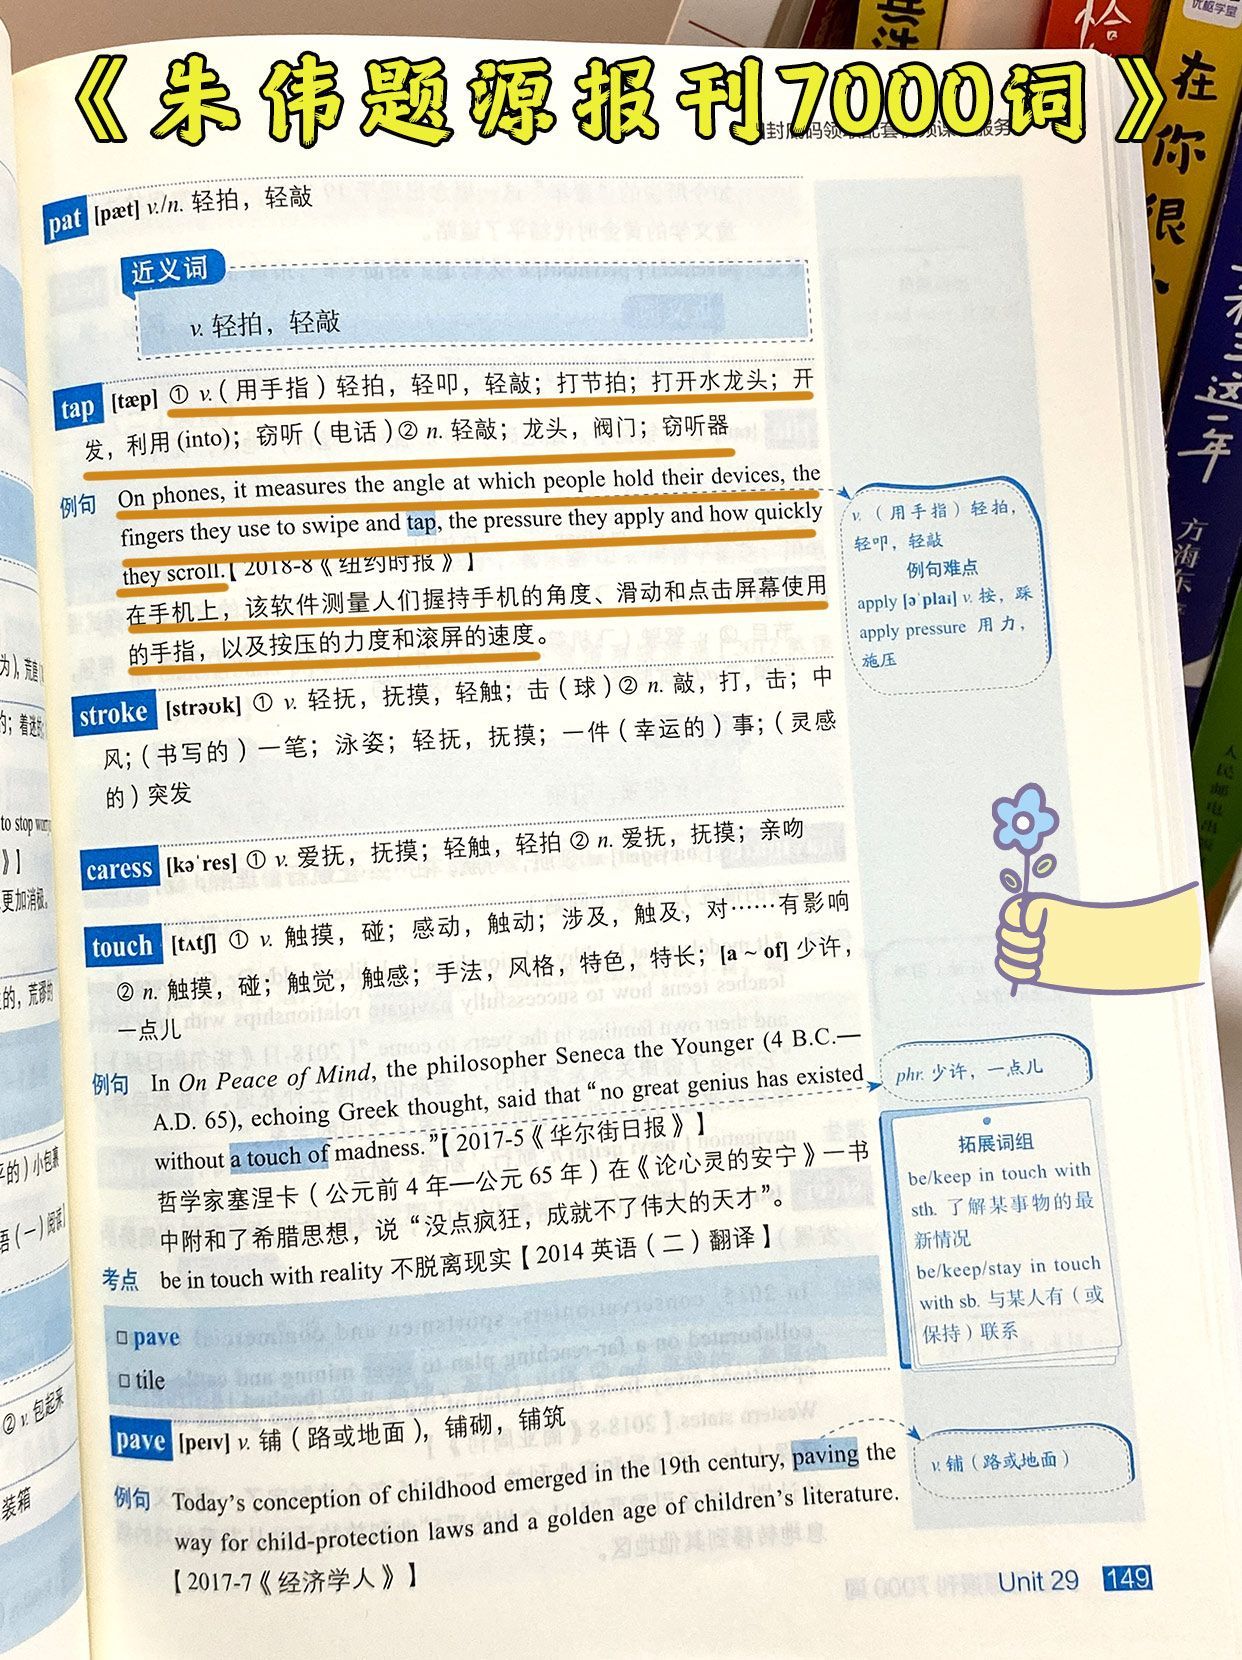 《朱伟题源报刊7000词》
pat [pæt] v./n. 轻拍，轻敲
近义词
v. 轻拍，轻敲
tap [tæp] ① v.（用手指）轻拍，轻叩，轻敲；打节拍；打开水龙头；开
发，利用 (into)；窃听（电话）② n. 轻敲；龙头，阀门；窃听器
例句 On phones, it measures the angle at which people hold their devices, the
fingers they use to swipe and tap, the pressure they apply and how quickly
they scroll.【2018-8《纽约时报》】
在手机上，该软件测量人们握持手机的角度、滑动和点击屏幕使用
的手指，以及按压的力度和滚屏的速度。
v.（用手指）轻拍，
轻叩，轻敲
例句难点
apply [əˈplaɪ] v. 按，踩
apply pressure 用力，
施压
stroke [strəʊk] ① v. 轻抚，抚摸，轻触；击（球）② n. 敲，打，击；中
风；（书写的）一笔；泳姿；轻抚，抚摸；一件（幸运的）事；（灵感
的）突发
caress [kəˈres] ① v. 爱抚，抚摸；轻触，轻拍 ② n. 爱抚，抚摸；亲吻
touch [tʌtʃ] ① v. 触摸，碰；感动，触动；涉及，触及，对……有影响
② n. 触摸，碰；触觉，触感；手法，风格，特色，特长；[a ~ of] 少许，
一点儿
例句 In On Peace of Mind, the philosopher Seneca the Younger (4 B.C.—
A.D. 65), echoing Greek thought, said that “no great genius has existed
without a touch of madness.”【2017-5《华尔街日报》】
哲学家塞涅卡（公元前 4 年—公元 65 年）在《论心灵的安宁》一书
中附和了希腊思想，说“没点疯狂，成就不了伟大的天才”。
考点 be in touch with reality 不脱离现实【2014 英语（二）翻译】
phr. 少许，一点儿
拓展词组
be/keep in touch with
sth. 了解某事物的最
新情况
be/keep/stay in touch
with sb. 与某人有（或
保持）联系
□ pave
□ tile
pave [peɪv] v. 铺（路或地面），铺砌，铺筑
例句 Today’s conception of childhood emerged in the 19th century, paving the
way for child-protection laws and a golden age of children’s literature.
【2017-7《经济学人》】
v. 铺（路或地面）
Unit 29 149
在你很
这一年
方海东
人民邮电出版
to stop worr
更加消极。
② v. 包起来
装箱